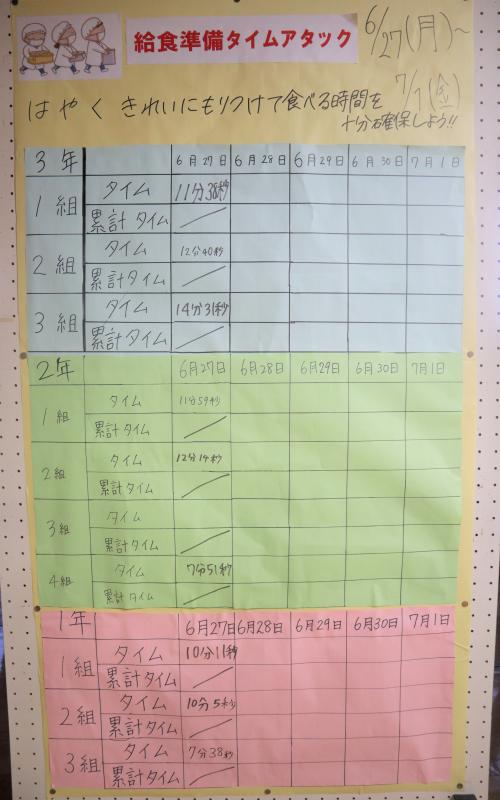 給食準備タイムアタック
6/27(月)~
7/1(金)
はやく きれいにもりつけて食べる時間を
十分確保しよう!!
3年 6月27日 6月28日 6月29日 6月30日 7月1日
1組 タイム 11分38秒
累計タイム
2組 タイム 12分40秒
累計タイム
3組 タイム 14分31秒
累計タイム
2年 6月27日 6月28日 6月29日 6月30日 7月1日
1組 タイム 11分59秒
累計タイム
2組 タイム 12分14秒
累計タイム
3組 タイム
累計タイム
4組 タイム 7分51秒
累計タイム
1年 6月27日 6月28日 6月29日 6月30日 7月1日
1組 タイム 10分11秒
累計タイム
2組 タイム 10分5秒
累計タイム
3組 タイム 7分38秒
累計タイム